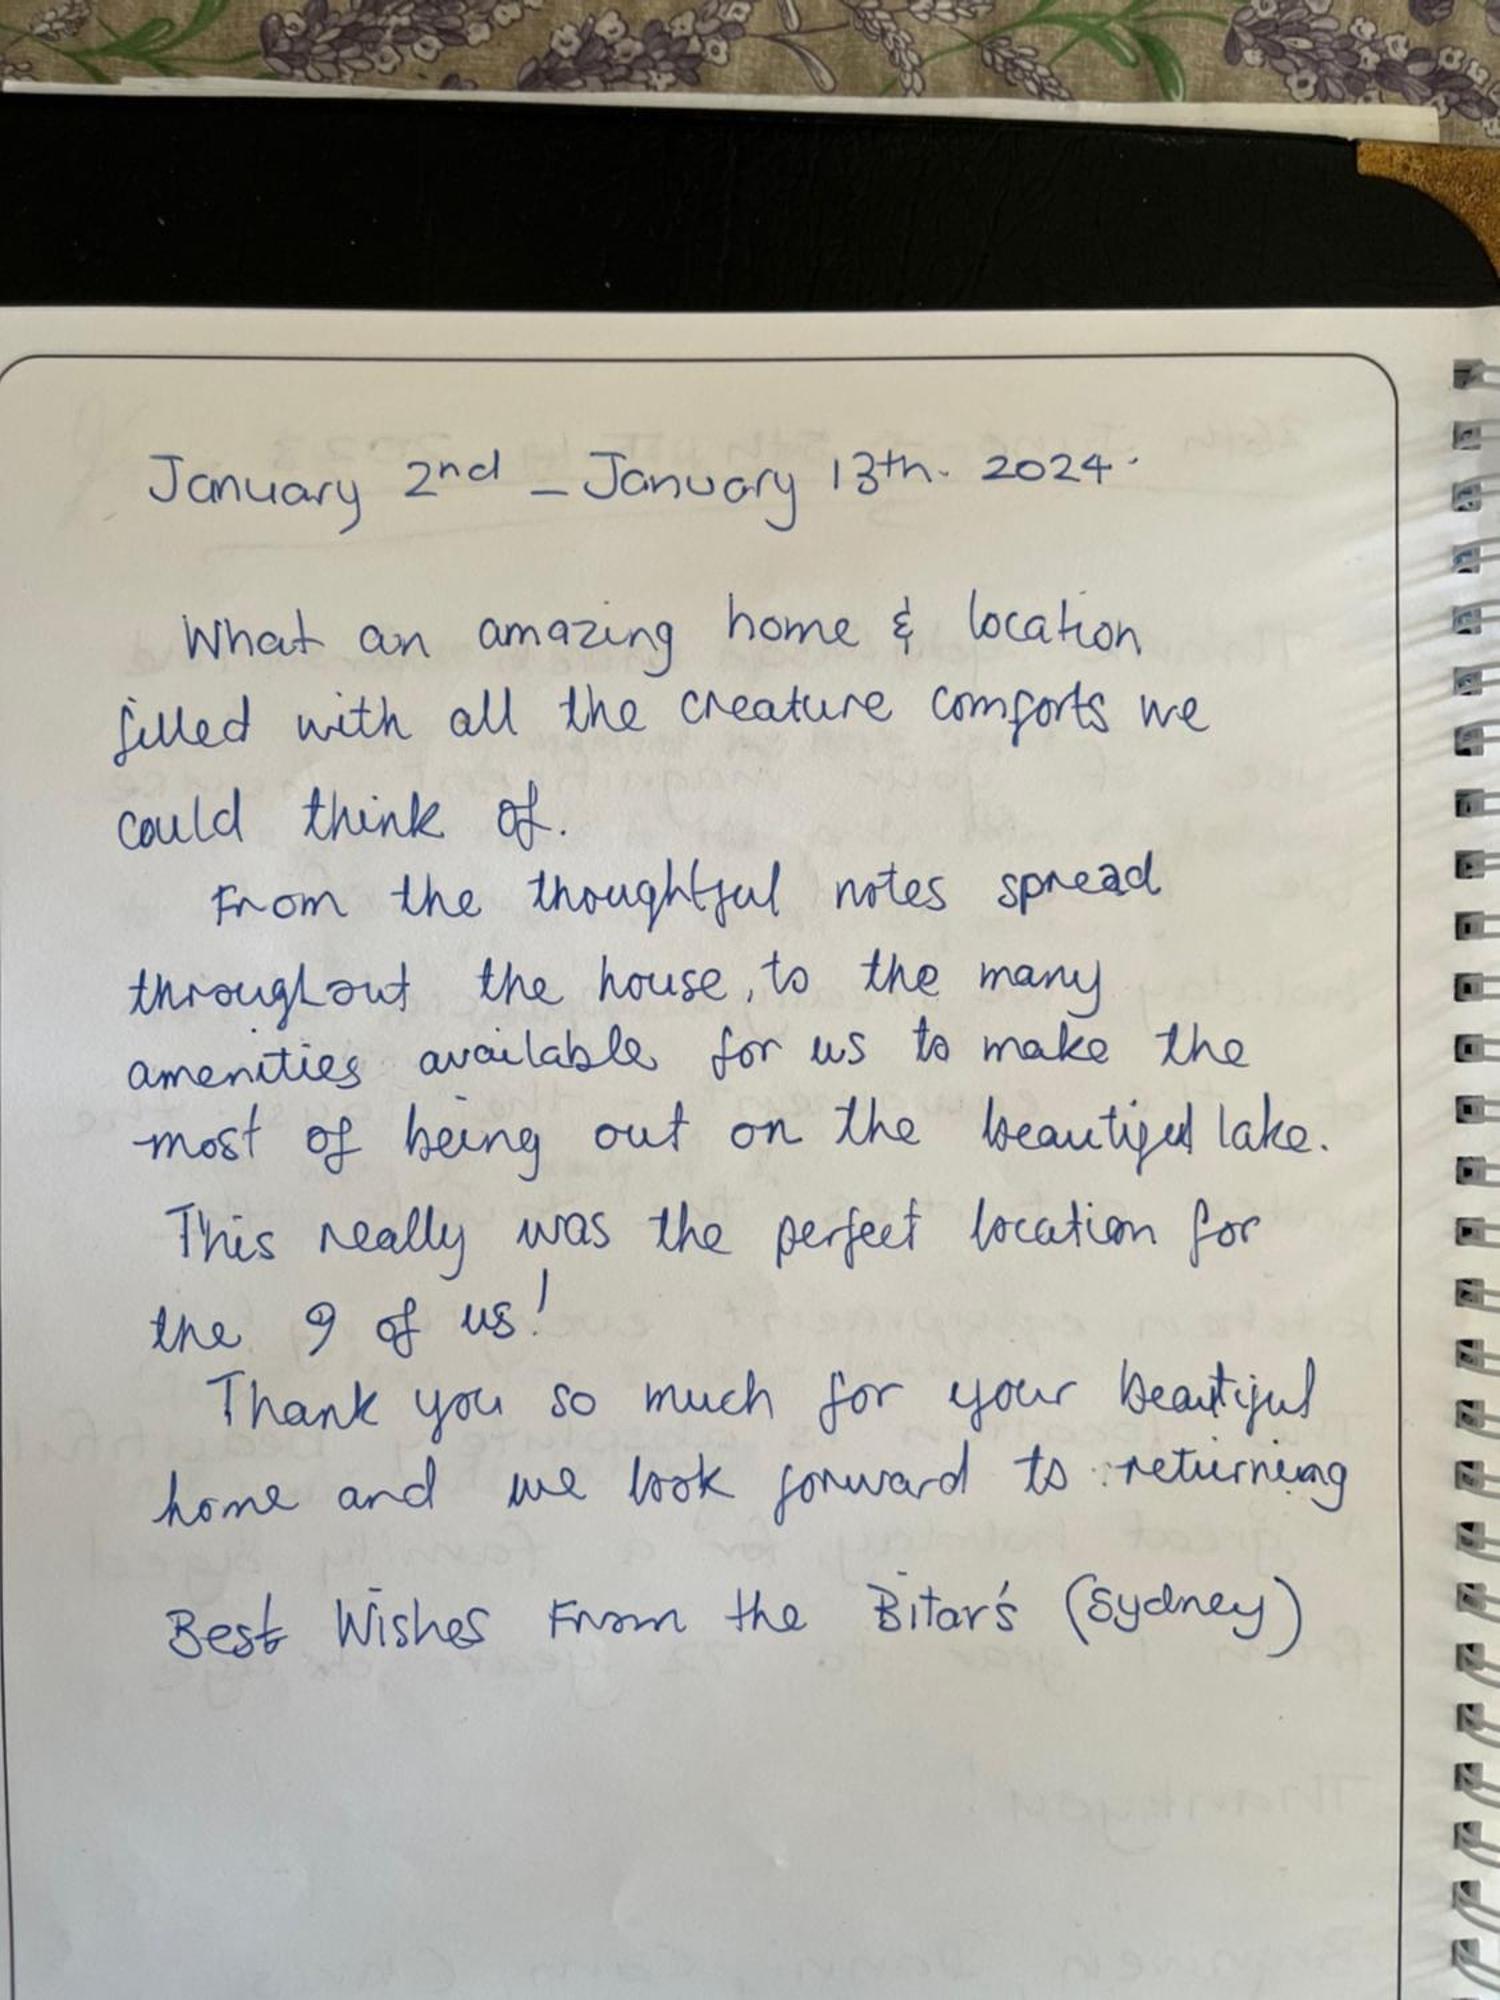 January 2nd - January 13th. 2024.
What an amazing home & location
filled with all the creature comforts we
could think of.
From the thoughtful notes spread
throughout the house, to the many
amenities available for us to make the
most of being out on the beautiful lake.
This really was the perfect location for
the 9 of us!
Thank you so much for your beautiful
home and we look forward to returning
Best Wishes From the Bitar's (Sydney)